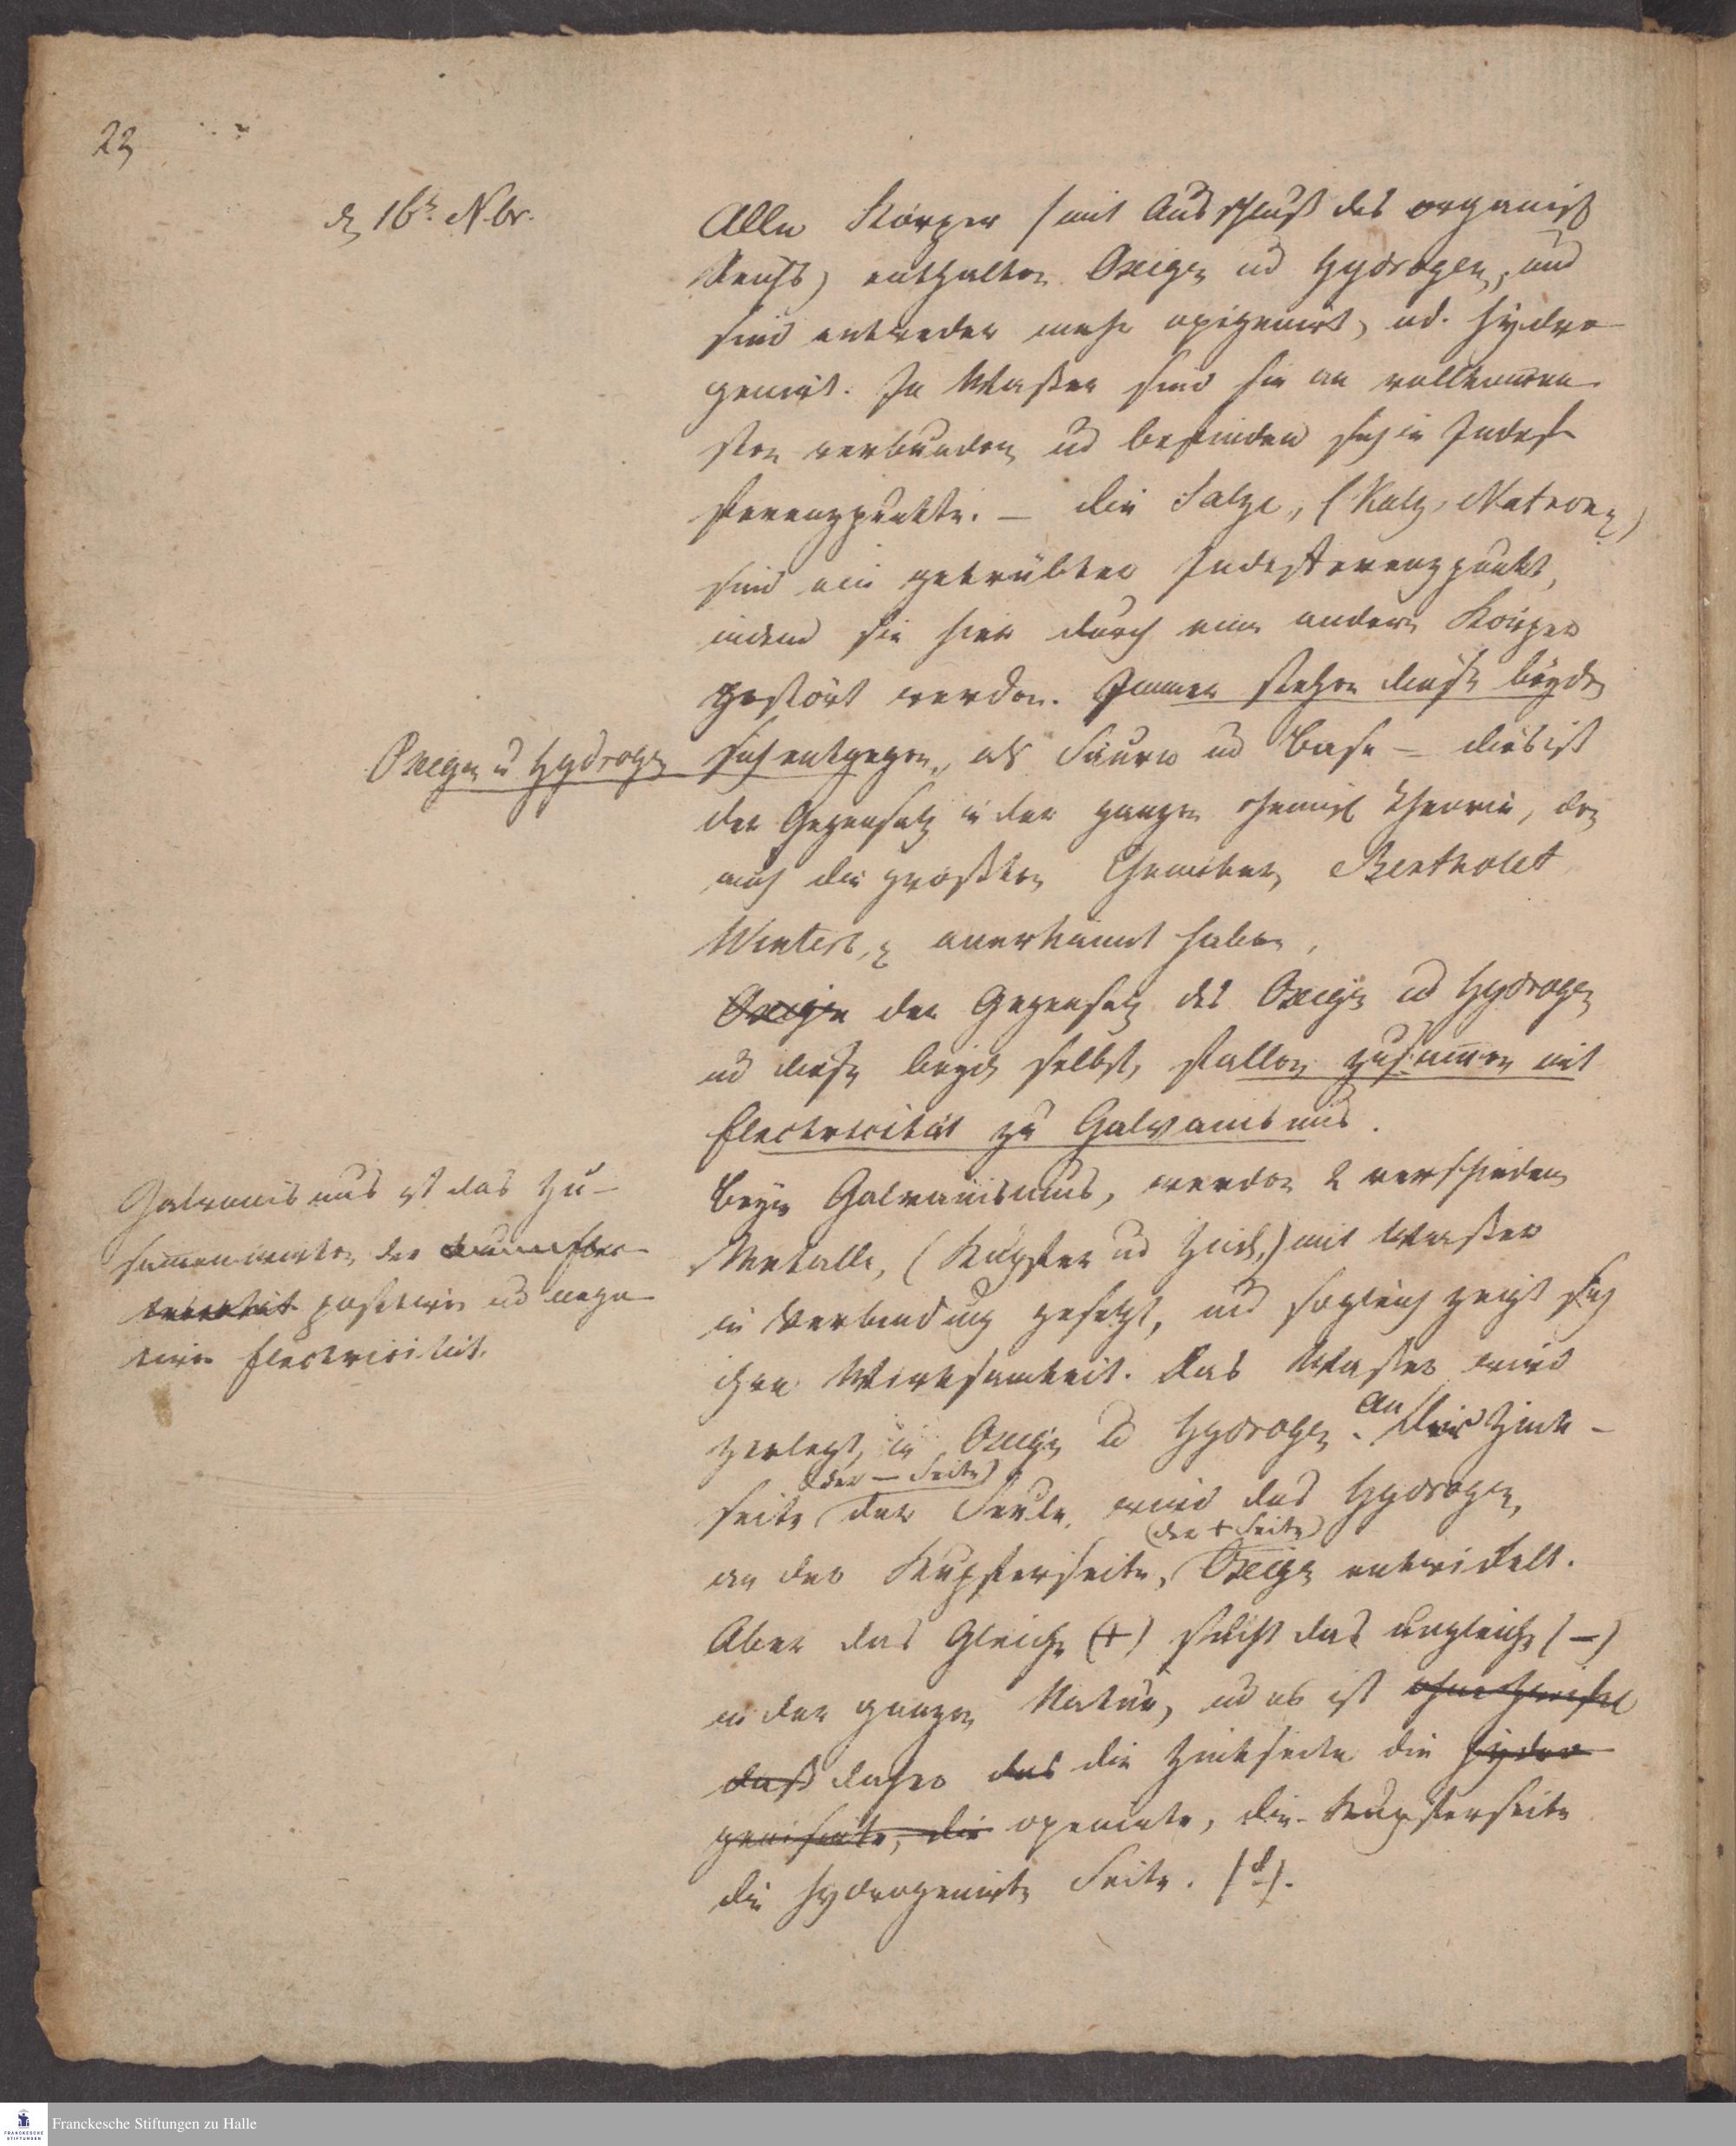 23
d 16t. Nbr.
Alle Körper (mit Ausschluß des organisch
Reichs) enthalten Oxigen ud Hydrogen, und
sind entweder mehr oxigenirt, od. hydro
genirt. Im Waßer sind sie am vollkommen
sten verbunden ud befinden sich in Indif
ferenzpunkte. – Die Salze, (Kali, Natron)
sind ein getrübter Indifferenzpunkt,
indem sie hier durch einen andern Körper
gestört werden. Immer stehen diese beyde
Oxigen u Hydrogen
sich entgegen, als Säure ud Base – dies ist
der Gegensatz in der ganzen chemisch Theorie, den
auch die größten Chemiker, Bertholet
Winterl, anerkannt haben.
Oxigen der Gegensatz des Oxigen ud Hydrogen
ud diese beyde selbst, fallen zusammen mit
Electricität u Galvanismus.
Galvanismus ist das Zu-
sammenwirken der
positiven ud nega-
tiven Electricität.
Beym Galvanismus, werden 2 verschiedene
Metalle, (Kupfer ud Zink,) mit Waßer
in Verbindung gesetzt, und sogleich zeigt sich
ihre Wirksamkeit. Das Waßer wird
zerlegt, in Oxigen ud Hydrogen. An der Zink-
(der – Seite)
seite der Seule wird das Hydrogen,
(der + Seite)
an der Kupferseite, Oxigen entwickelt.
Aber das Gleiche (+) sucht das ungleiche (–)
in der ganzen Natur, ud es ist ohne Zweifel
daß daher das die Zinkseite die hydro
genisirte, die oxenirte, die Kupferseite
die hydrogenirte Seite.